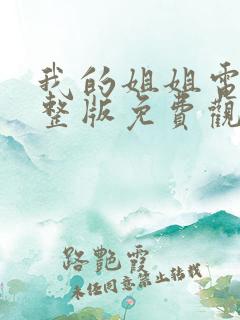 我的姐姐電
整版免費觀
路艷霞
未经同意禁止转载